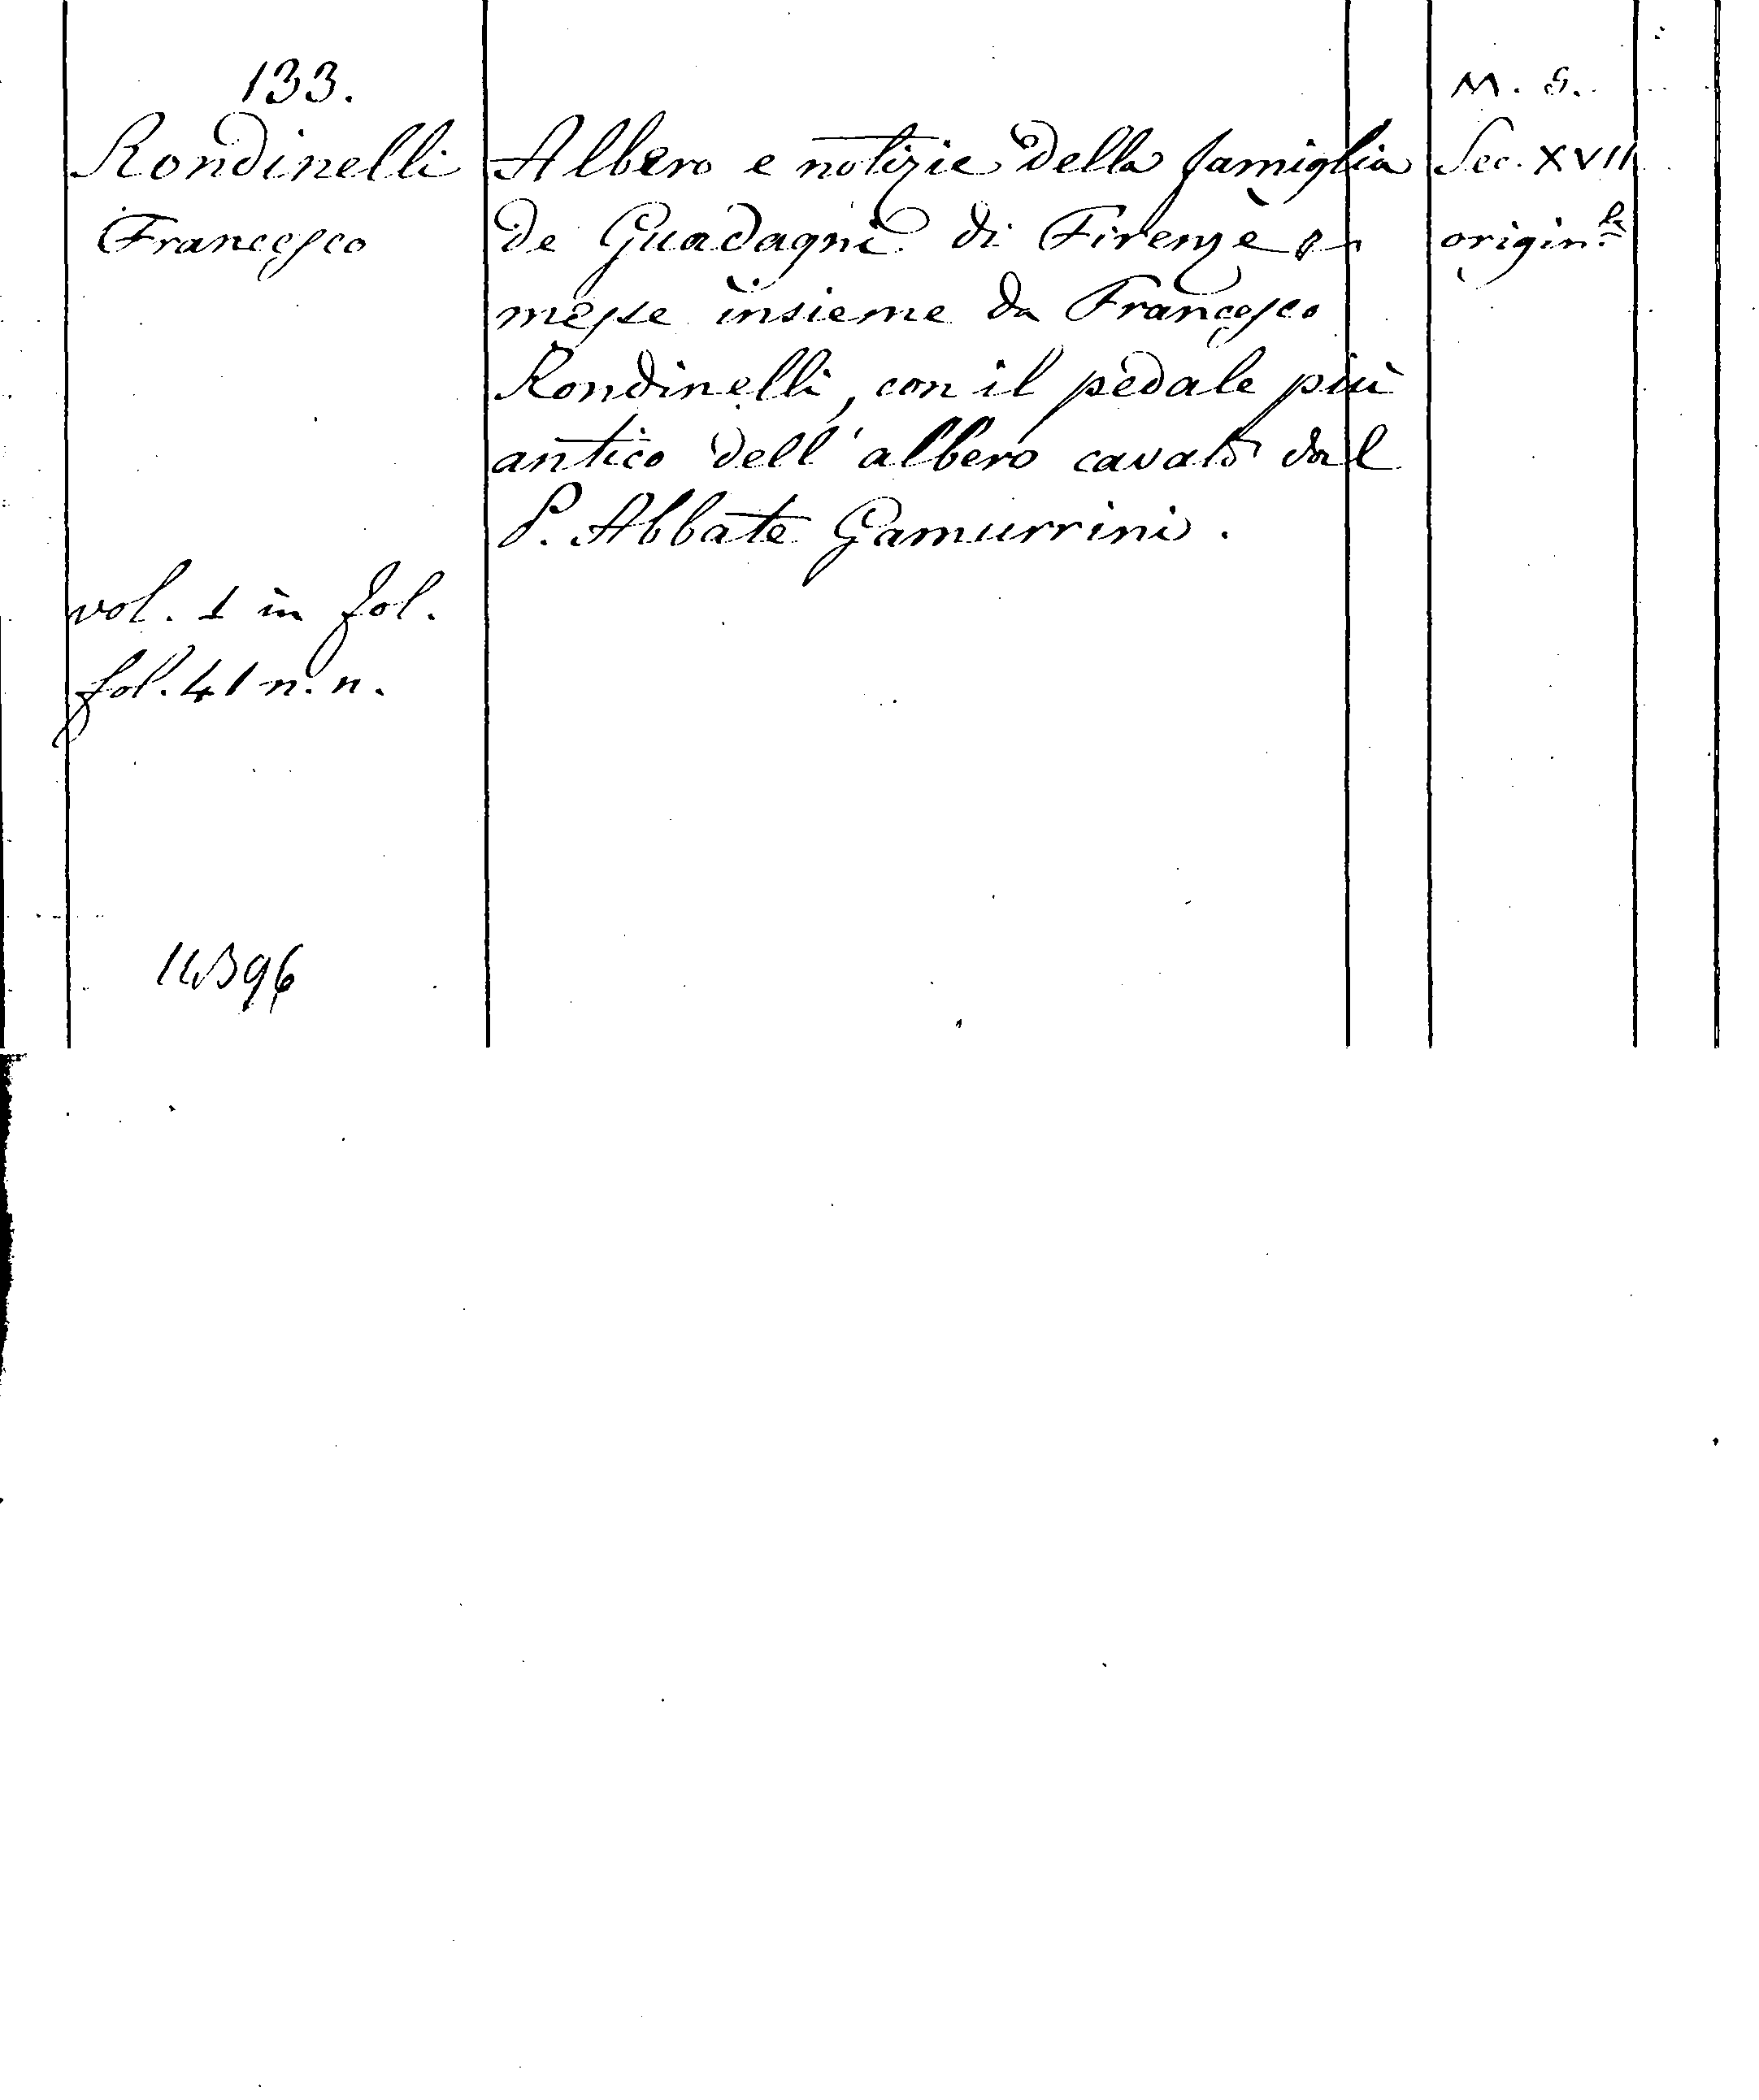 133.
Rondinelli
Francesco
vol. 1 in fol.
fol. 41 n. n.
Albero e notizie della famiglia
de Guadagni di Firenze
messe insieme da Francesco
Rondinelli, con il pedale più
antico dell'albero cavato dal
P. Abbate Gamurrini.
M. S.
Sec. XVII
origin.le